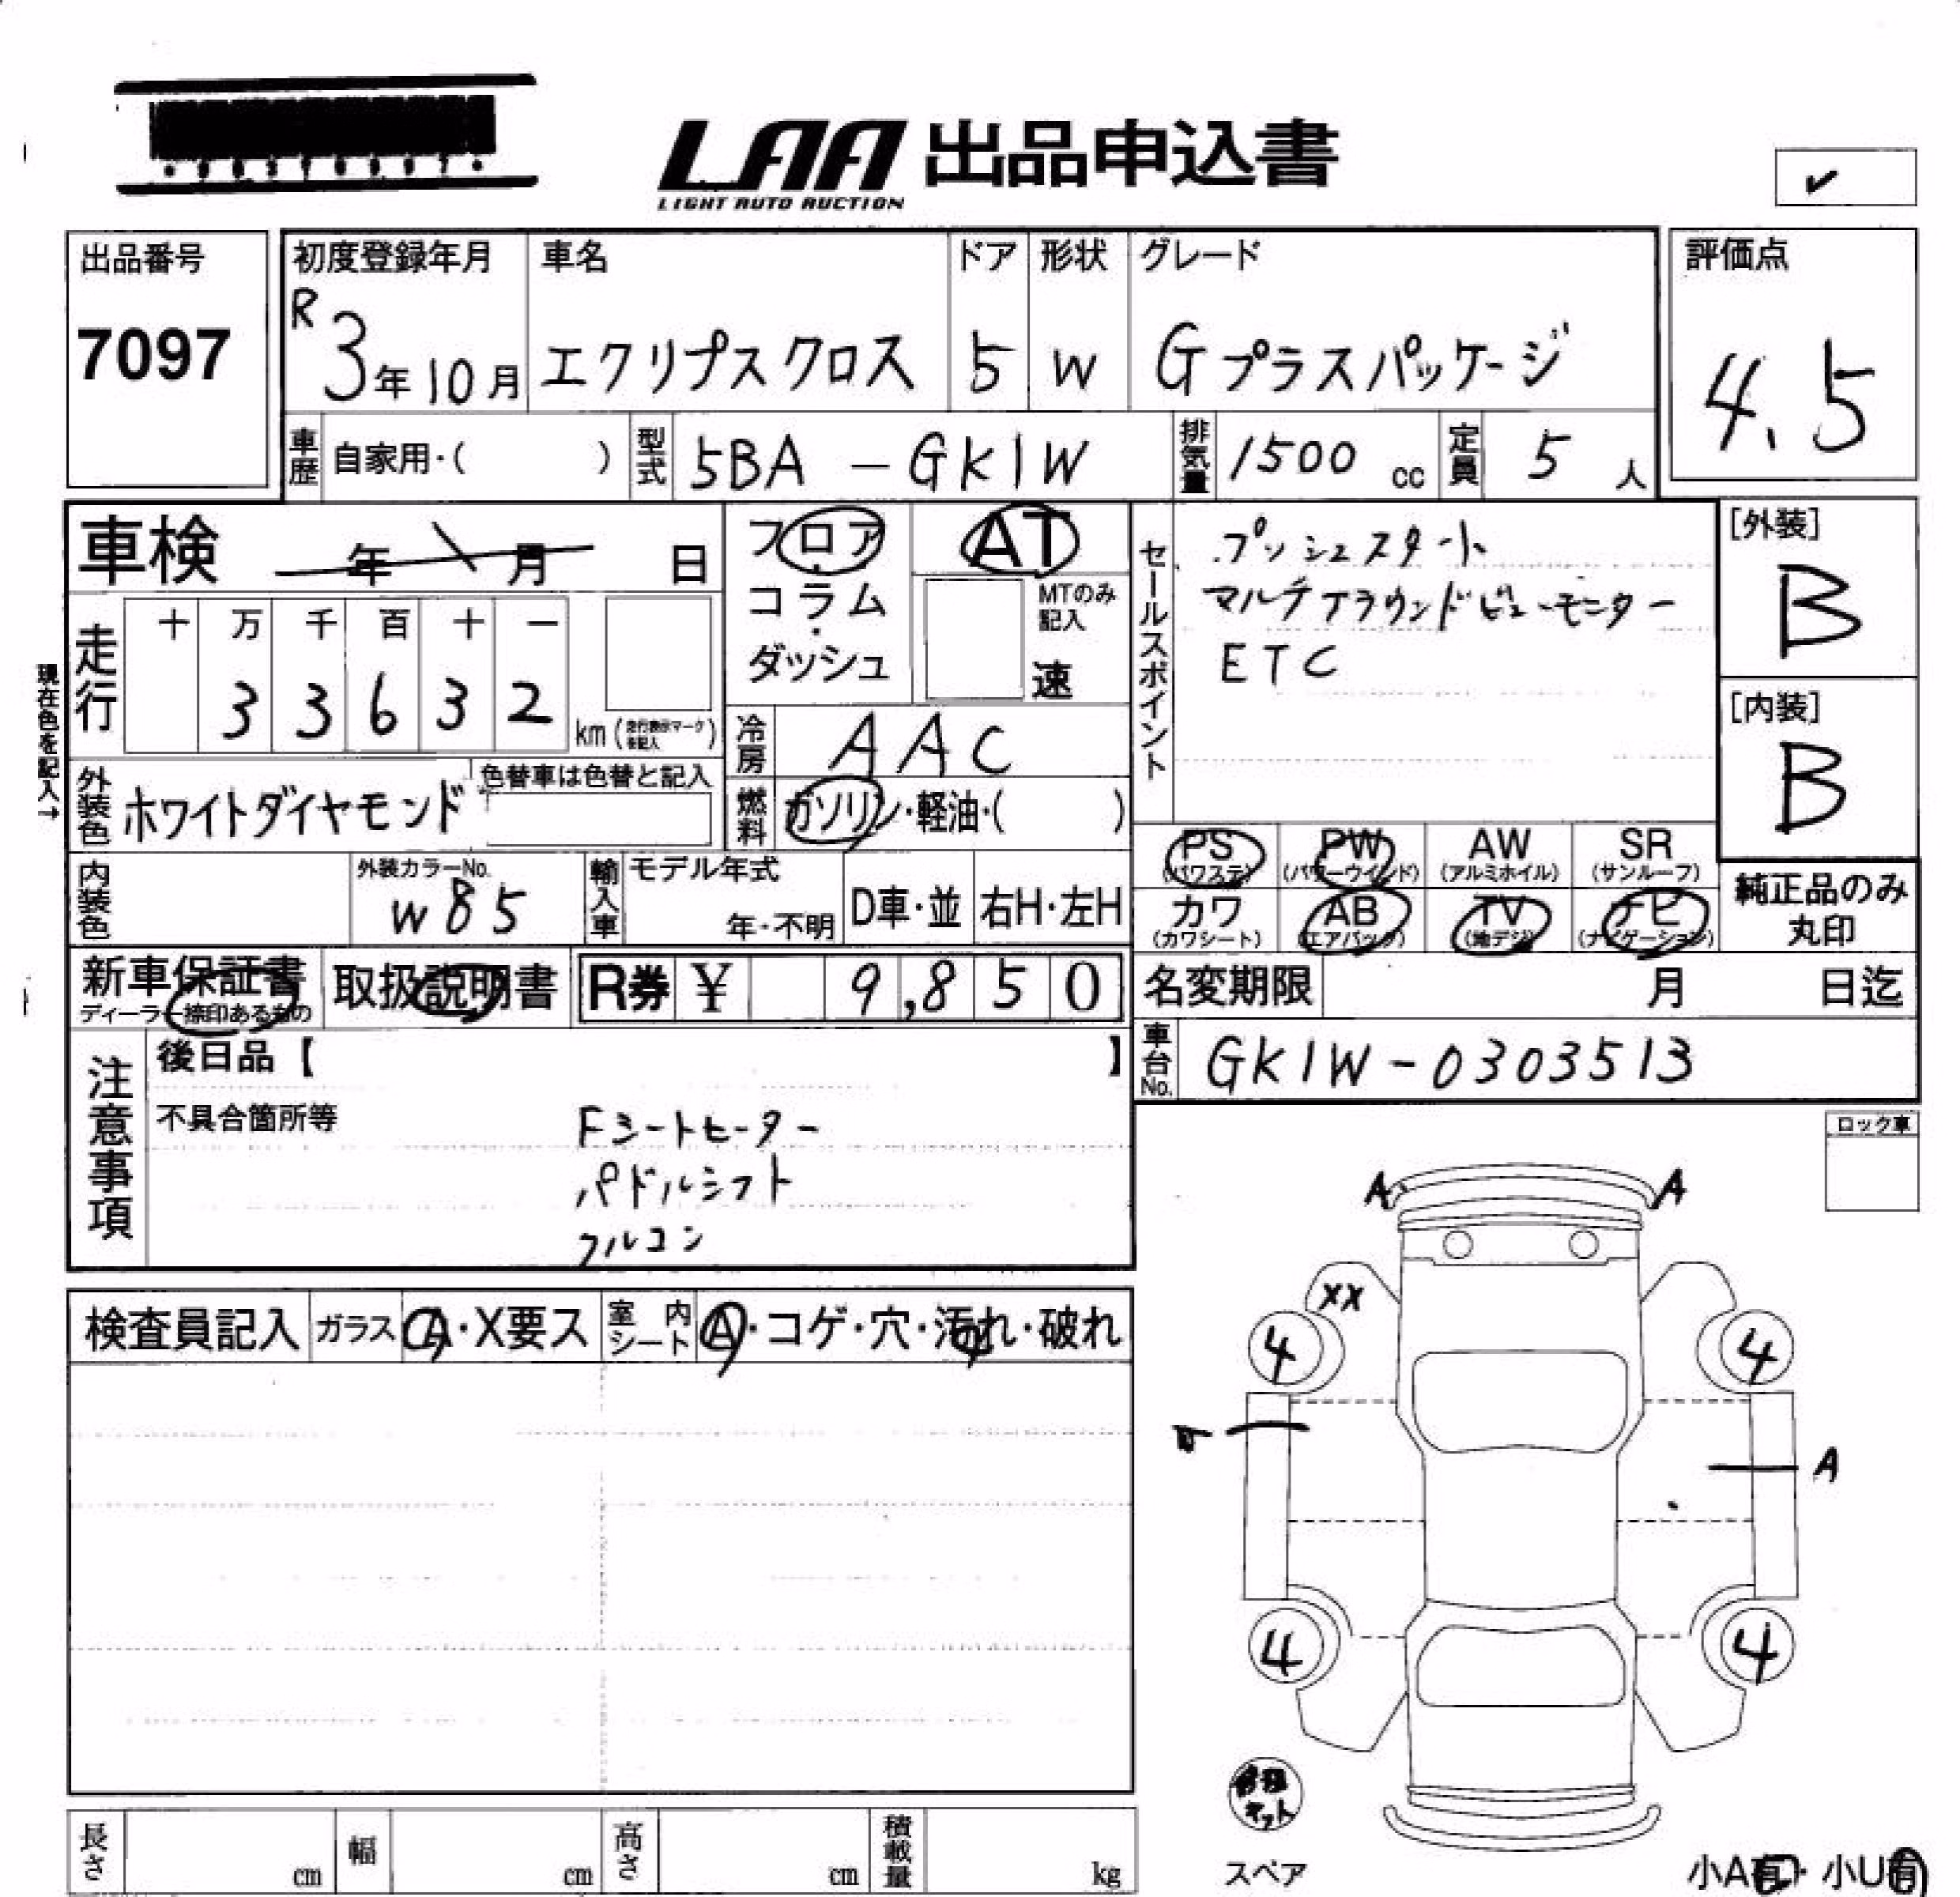 LAA 出品申込書
LIGHT AUTO AUCTION
✓
出品番号
7097
初度登録年月
R3年10月
車名
エクリプスクロス
ドア
5
形状
W
グレード
Gプラスパッケージ
評価点
4.5
車歴 自家用・( )
型式 5BA-GK1W
排気量 1500 cc
定員 5 人
車検 年 月 日
フロア・コラム・ダッシュ
AT
MTのみ記入
速
セールスポイント
プッシュスタート
マルチアラウンドビューモニター
ETC
[外装]
B
[内装]
B
現在色を記入→
走行
十 万 千 百 十 一
3 3 6 3 2 km (走行表示マークを記入)
冷房 AAC
外装色 ホワイトダイヤモンド
色替車は色替と記入
燃料 ガソリン・軽油・( )
PS (パワステ)
PW (パワーウインド)
AW (アルミホイル)
SR (サンルーフ)
カワ (カワシート)
AB (エアバック)
TV (地デジ)
ナビ (ナビゲーション)
純正品のみ
丸印
内装色
外装カラーNo.
W85
輸入車 モデル年式
年・不明
D車・並
右H・左H
新車保証書
ディーラー捺印あるもの
取扱説明書
R券 ¥ 9,850
名変期限 月 日迄
車台No. GK1W-0303513
注意事項
後日品【 】
不具合箇所等
Fシートヒーター
パドルシフト
クルコン
ロック車
A A
XX
4 4
A
4 4
検査員記入
ガラス A・X要ス
室内シート A・コゲ・穴・汚れ・破れ
修理キット
スペア
小A有・小U有
長さ cm
幅 cm
高さ cm
積載量 kg